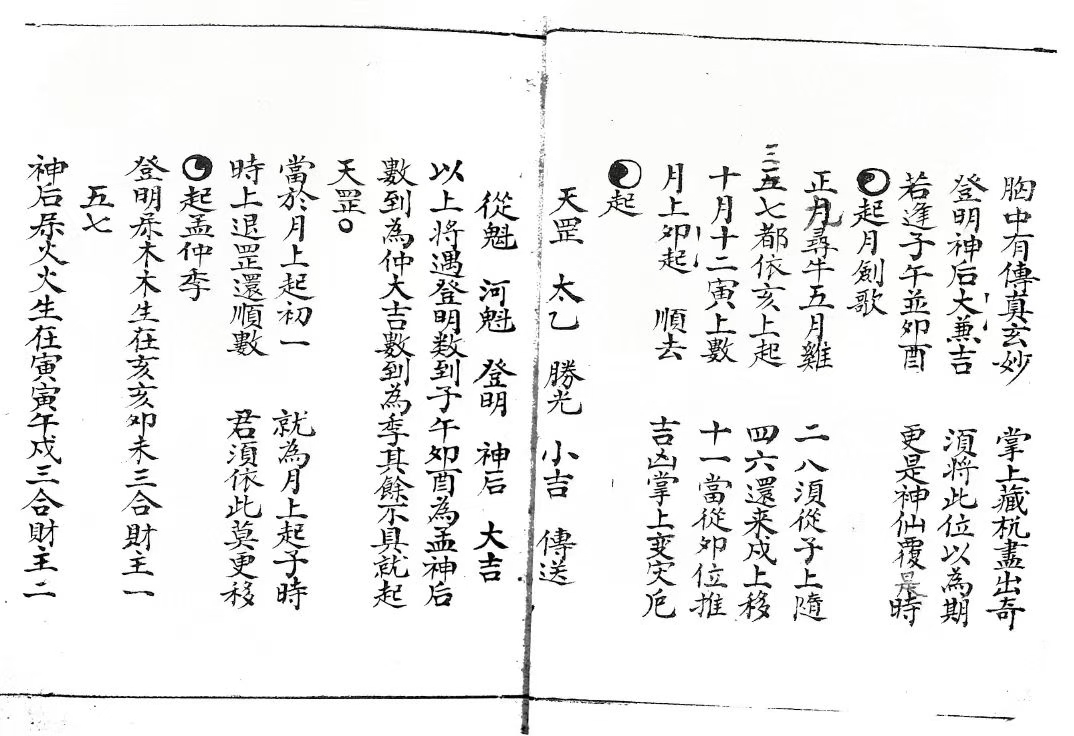 胸中有傳真玄妙　掌上藏杭盡出奇
登明神后大兼吉　須將此位以為期
若逢子午並卯酉　更是神仙覆時
起月劍歌
正九月尋牛五月雞　二八須從子上隨
三七都依亥上起　四六還来戌上移
十月十二寅上數　十一當從卯位推
月上卯起　順去　吉凶掌上变灾厄
起
天罡　太乙　勝光　小吉　傳送
從魁　河魁　登明　神后　大吉
以上將遇登明数到子午卯酉為孟神后
數到為仲大吉數到為季其餘不具就起
天罡○
當於月上起初一　就為月上起子時
時上退罡還順數　君須依此莫更移
起孟仲季
登明屬木木生在亥亥卯未三合財主一
五七
神后屬火火生在寅寅午戌三合財主二